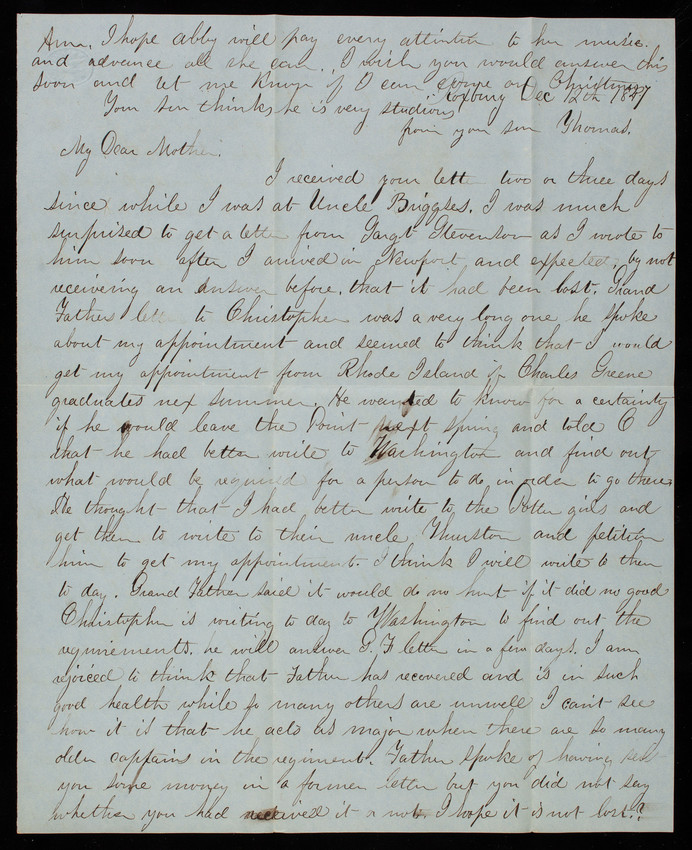 Anna. I hope abby will pay every attention to her music.
and advance all she can. I wish you would answer this
soon and let me know if I can come on Christmas
Your son thinks he is very studious
from your son Thomas.
Roxbury Dec 12th 1847
My Dear Mother.
I received your lette two or three days
since while I was at Uncle Briggses. I was much
surprised to get a letter from Sargt Stevenson as I wrote to
him soon after I arrived in Newport and expected, by not
receiving an answer before, that it had been lost. Grand
Fathers letter to Christopher was a very long one he spoke
about my appointment and seemed to think that I would
get my appointment from Rhode Island if Charles Greene
graduates nex summer. He wanted to know for a certainty
if he would leave the Point next spring and told C
that he had better write to Washington and find out
what would be required for a person to do in order to go there
He thought that I had better write to the Potter girls and
get them to write to their uncle Thurston and petition
him to get my appointment. I think I will write to them
to day. Grand Father said it would do no hurt if it did no good
Christopher is writing to day to Washington to find out the
requirements. he will answer G. F letter in a few days. I am
rejoiced to think that Father has recovered and is in such
good health while so many others are unwell I can't see
how it is that he acts as major when there are so many
older captains in the regiment. Father spoke of having sent
you some money in a former letter but you did not say
whether you had received it or not. I hope it is not lost.?